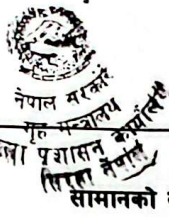 नेपाल सरकार
गृह मन्त्रालय
जिल्ला प्रशासन कार्यालय
सिरहा नेपाल
सामानको